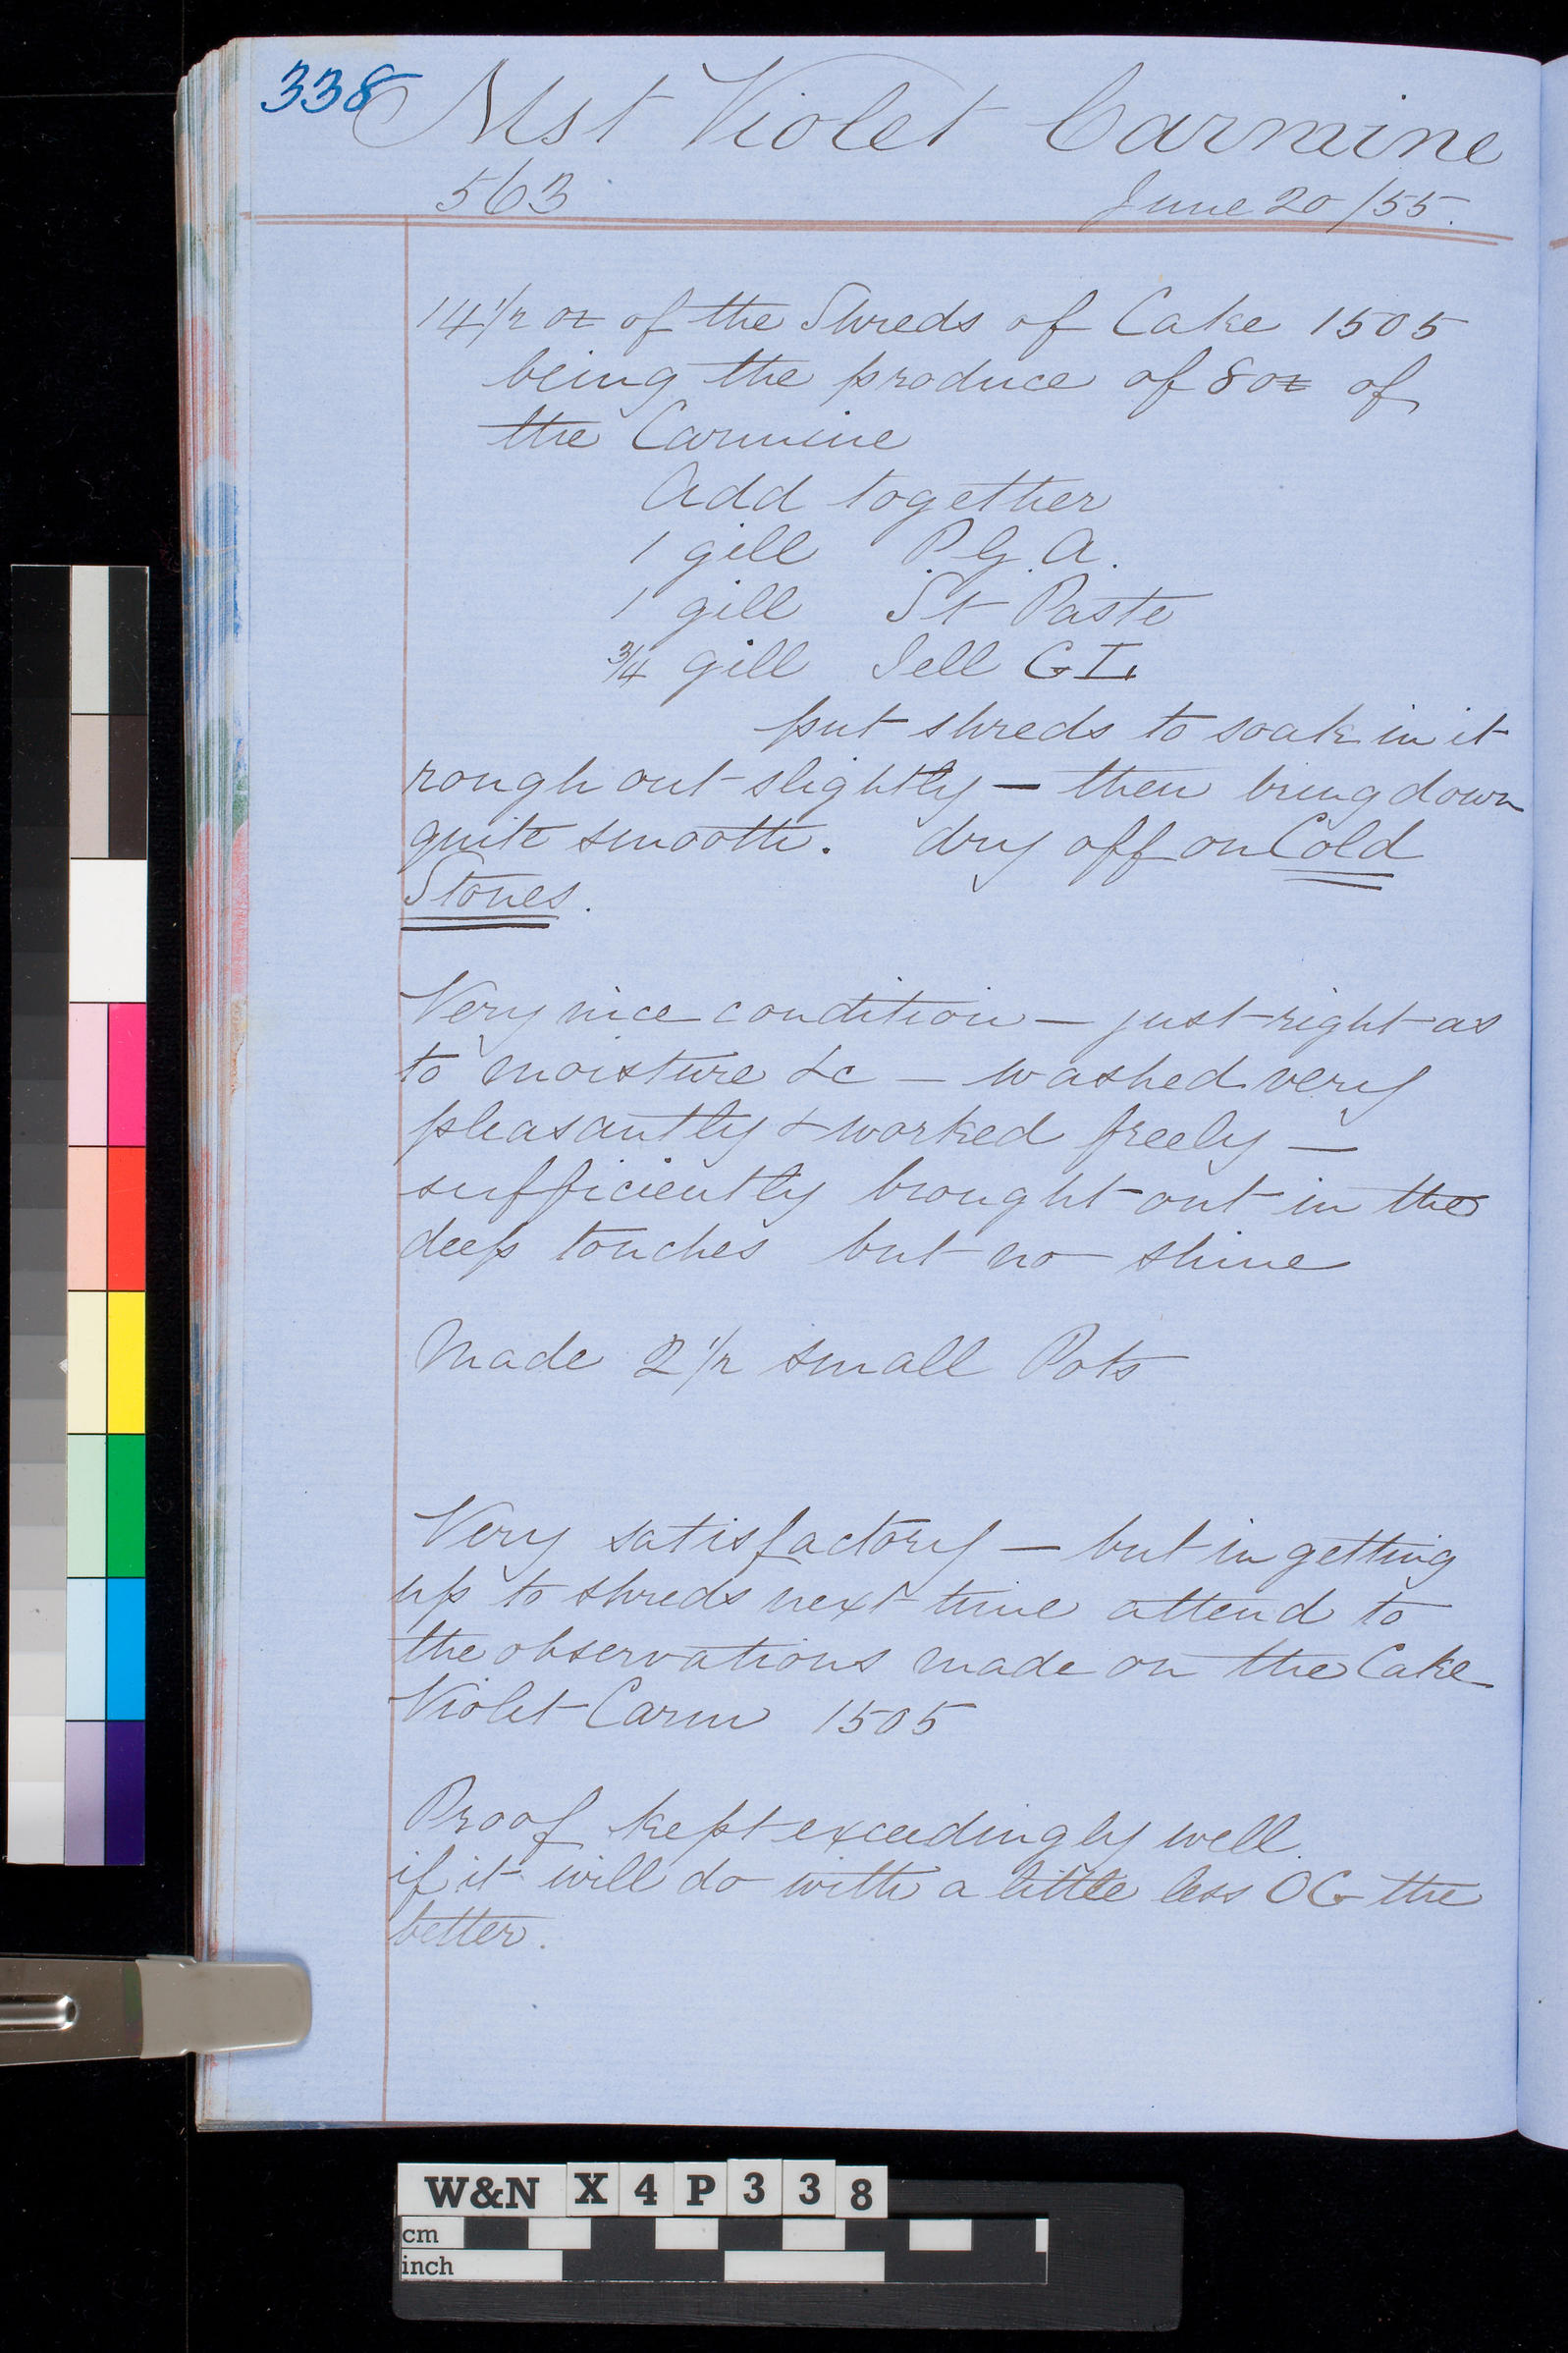 338 Mst Violet Carmine
563 June 20/55.
14 1/2 oz of the Shreds of Cake 1505
being the produce of 8 oz of
the Carmine
Add together
1 gill P. G. A.
1 gill St Paste
3/4 gill Jell GI.
put shreds to soak in it
rough out slightly — then bring down
quite smooth. dry off on Cold
Stones.
Very nice condition — just right as
to moisture &c — washed very
pleasantly & worked freely —
sufficiently brought out in the
deep touches but no shine
Made 2 1/2 small Pots
Very satisfactory — but in getting
up to shreds next time attend to
the observations made on the Cake
Violet Carm 1505
Proof kept exceedingly well.
if it will do with a little less OG the
better.
W&N X4P338
cm
inch